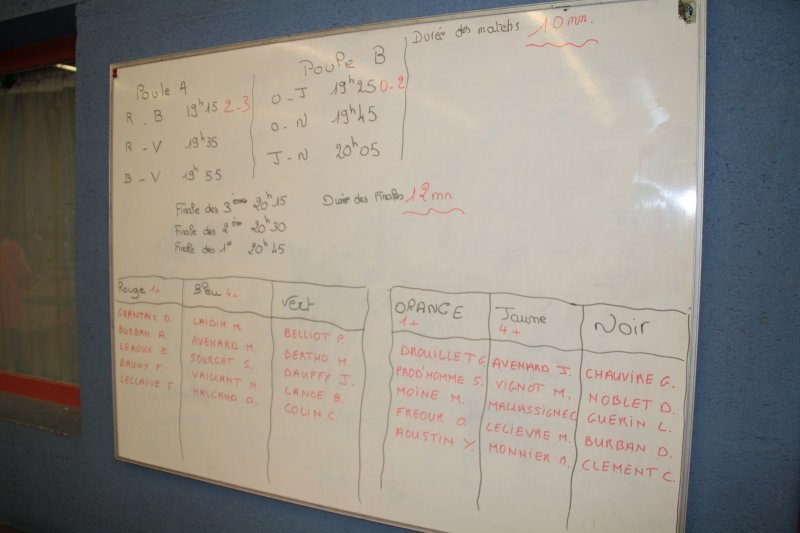 Poule A
R - B 19h15 2-3
R - V 19h35
B - V 19h55
Poule B
O - J 19h25 0-2
O - N 19h45
J - N 20h05
Durée des matchs 10 mn.
Finale des 3ème 20h15
Finale des 2ème 20h30
Finale des 1er 20h45
Durée des Finales 12 mn
Rouge 1+
BURBAN A.
LEROUX E.
BAUNY F.
LECLAIVE F.
Bleu 4+
LAIDIN M.
AVENARD M.
SOURGET S.
VAILLANT N.
HALGAND D.
Vert
BELLIOT P.
BERTHO M
DAUFFY J.
LANOE B.
COLIN C.
ORANGE
1+
DROUILLET G.
PROD'HOMME S.
MOINE M.
FREOUR O.
AOUSTIN Y.
Jaune
4+
AVENARD J.
VIGNOT M.
MALLASSIGNE C
LELIEVRE M.
MONNIER A.
Noir
CHAUVIRE G.
NOBLET D.
GUERIN L.
BURBAN D.
CLEMENT C.